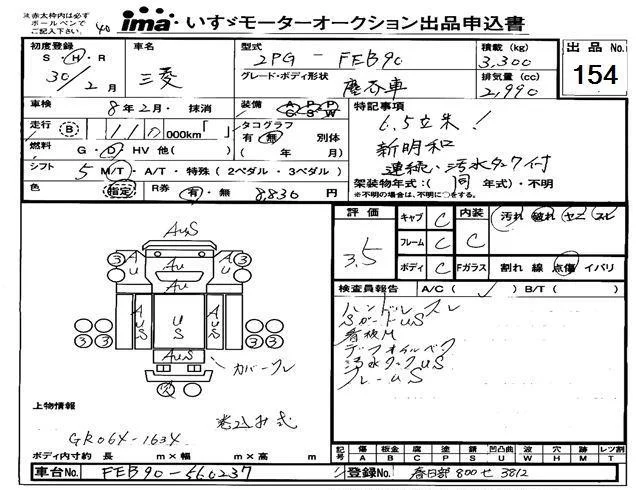 ※赤太枠内は必ずボールペンでご記入下さい。 40 ima いすゞモーターオークション出品申込書
初度登録 S・H・R 30/2月
車名 三菱
型式 2PG - FEB90
グレード・ボディ形状 塵芥車
積載(kg) 3,300
排気量(cc) 2,990
出品No. 154
車検 8年2月・抹消
装備 A/C P/S P/W
特記事項
6.5立米!
新明和
連続・汚水タンク付
架装物年式:(同 年式)・不明
※不明の場合は、不明に○をする。
走行 B 110 000km「 」
タコグラフ 有・無 別体 ( 年 月)
燃料 G・D・HV 他( )
シフト 5 M/T・A/T・特殊(2ペダル・3ペダル)
色 指定 R券 有・無 8,830円
評価 3.5
キャブ C
フレーム C
ボディ C
内装 C
汚れ 破れ ヤニ スレ
Fガラス 割れ 線 点傷 イバリ
検査員報告 A/C( ✓ ) B/T( )
ハンドルスレ
SガードUS
看板M
デフオイルベク
汚水タンクUS
フレームUS
AUS
3 3
AU AU AU
AUS US AUS
3 3 3 3
AUS
カバーフレ
上物情報
巻込み式
GR064-1634
ボディ内寸約 長 m×幅 m×高 m
記号 傷A 板金B 腐C 塗P 錆S 凹凸曲U 波W 穴H 跡M レツ割T
車台No. FEB90-560237
登録No. 春日部 800せ 3812